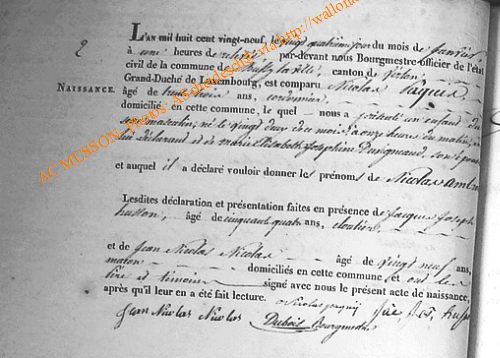 L'AN mil huit cent vingt-neuf, le vingt quatrième jour du mois de janvier
2
à une heures de relevée par-devant nous Bourgmestre-officier de l'état
civil de la commune de canton de
NAISSANCE.
Grand-Duché de Luxembourg, est comparu Nicolas Jaques
âgé de trois ans, cordonnier
domicilié en cette commune, le quel nous a présenté un enfant du
sexe masculin, né le vingt deux du mois, à onze heures du matin, de
lui déclarant et de marie Elisabeth Josephine son épouse
et auquel il a déclaré vouloir donner les prénoms de Nicolas
Lesdites déclaration et présentation faites en présence de Jacques Joseph
husson, âgé de cinquante quatre ans, cloutier
et de Jean Nicolas Nicolas âgé de vingt neuf ans,
domiciliés en cette commune et ont les
père et témoins signé avec nous le présent acte de naissance,
après qu'il leur en a été fait lecture.
Jean Nicolas Nicolas Dubois Bourgmestre
AC MUSSON, Photos Ardennaisdesite via http://wallonia